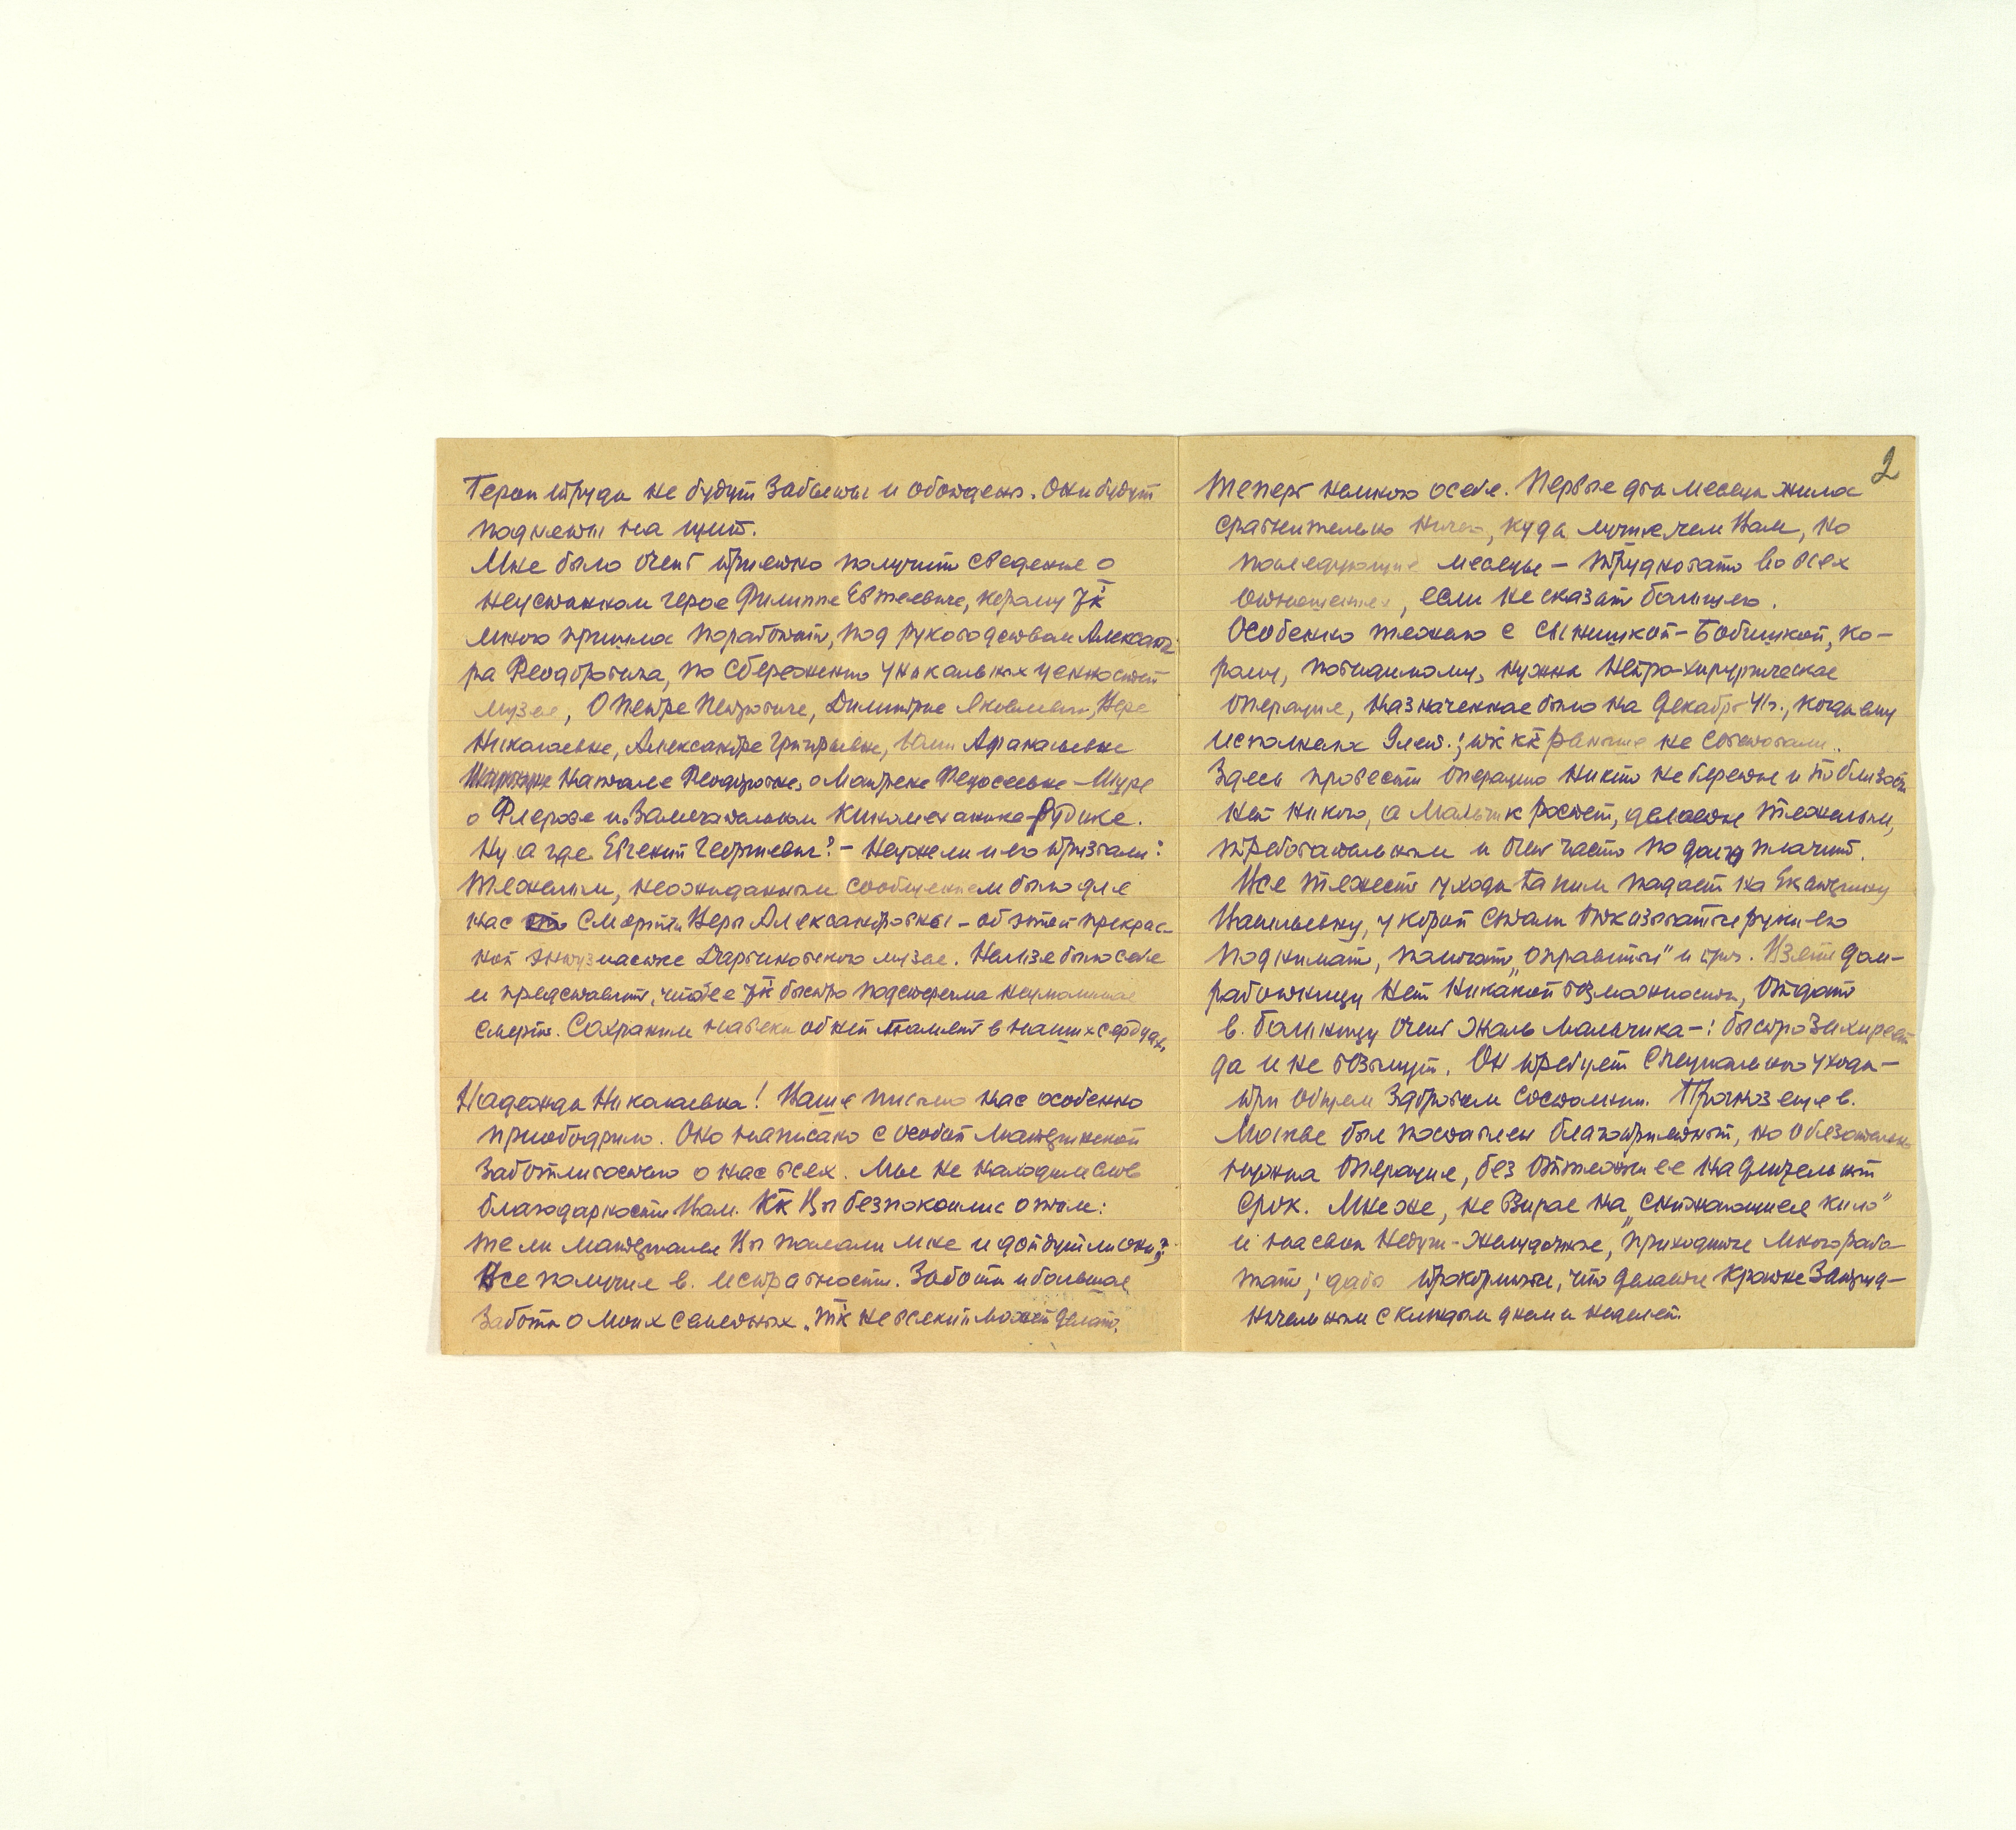 Герои труда не будут забыты и обойдены. Они будут
подняты на щит.
Мне было очень приятно получить сведение о
неустанном герое Филиппе Евтеевиче, которому так
много пришлос поработать, под руководством Александ-
ра Феодоровича, по сбережению уникальных ценностей
музея, о Петре Петровиче, Димитрие Яковлевич, Вере
Николаевне, Александре Григорьевне, Афанасьевне
Наталье Феодоровне, о Матрене Федосеевне – Шуре
о Флерове и о замечательном киномеханике – Рудике.
Ну а где Евгений Георгиевич? – Неужели и его призвали?
Тяжелым, неожиданным сообщением было для
нас о смерти Веры Александровны – об этой прекрас-
ной энтузиастке Дарвиновского музея. Нельзя было себе
и представить, что ее так быстро подстерегла неумолимая
смерть. Сохраним навеки об ней память в наших сердцах.
Надежда Николаевна! Ваше письмо нас особенно
приободрило. Оно написано с особой материнской
заботливостью о нас всех. Мы не находим слов
благодарности Вам. Как Вы безпокоились о том:
те ли материалы Вы послали мне и дойдут ли они?
Все получил в исправности. Заботы и большая
забота о моих семейных. Так не всякий может делать.
2
Теперь немного о себе. Первые два месяца жила
сравнительно ничего, куда лучше чем Вам, но
последующие месяцы – трудновато во всех
отношениях, если не сказать большего.
Особенно тяжело с сынишкой – Бобишкой, ко-
рому, повидимому, нужна нейро-хирургическая
операция, назначенная была на декабрь 41г., когда ему
исполнялся 9 лет.; так как раньше не советовали.
Здесь провести операцию никто не берется и поблизости
нет никого, а мальчик растет, делается тяжелым,
требовательным и очень часто по долгу плачет.
Вся тяжесть ухода за ним падает на Екатерину
Васильевну, у которой стали отказываться руки его
поднимать, помогать „оправиться" и проч. Взять дом-
работницу нет никакой возможности, отдать
в. больницу очень жаль мальчика –: быстро захиреет
да и не возьмут. Он требует специального ухода –
при общем здоровом состоянии. Прогноз еще в.
Москве был поставлен благоприятный, но обязательно
нужна операция, без оттяжки ее на длительный
срок. Мне же, не взирая на „снижающиеся кило"
и на свои недуги – желудочные, приходится много рабо-
тать; дабы прокормиться, что делается крайне затруд-
нительным с каждым днем и неделей.